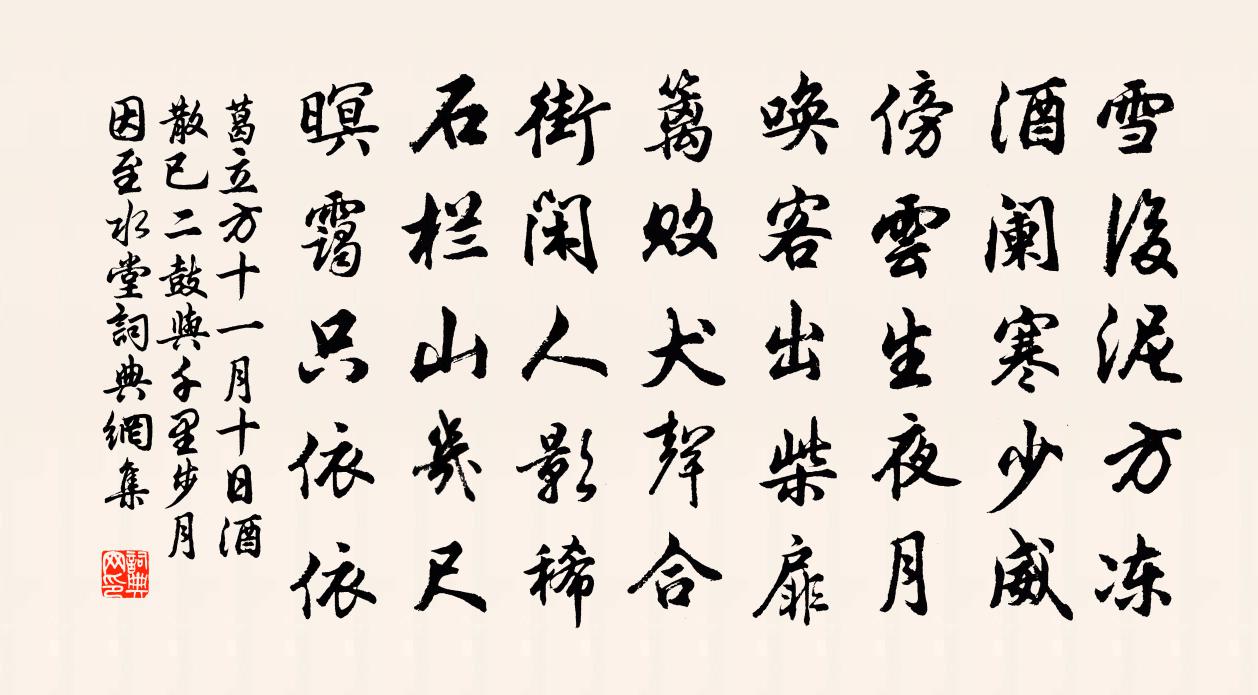 雪後泥方冻
酒阑寒少威
傍雲生夜月
唤客出柴扉
篱败犬聲合
街閑人影稀
石栏山幾尺
暝靄只依依
葛立方十一月十日酒
散已二鼓與千里步月
因至水堂詞典網集
詞典網印